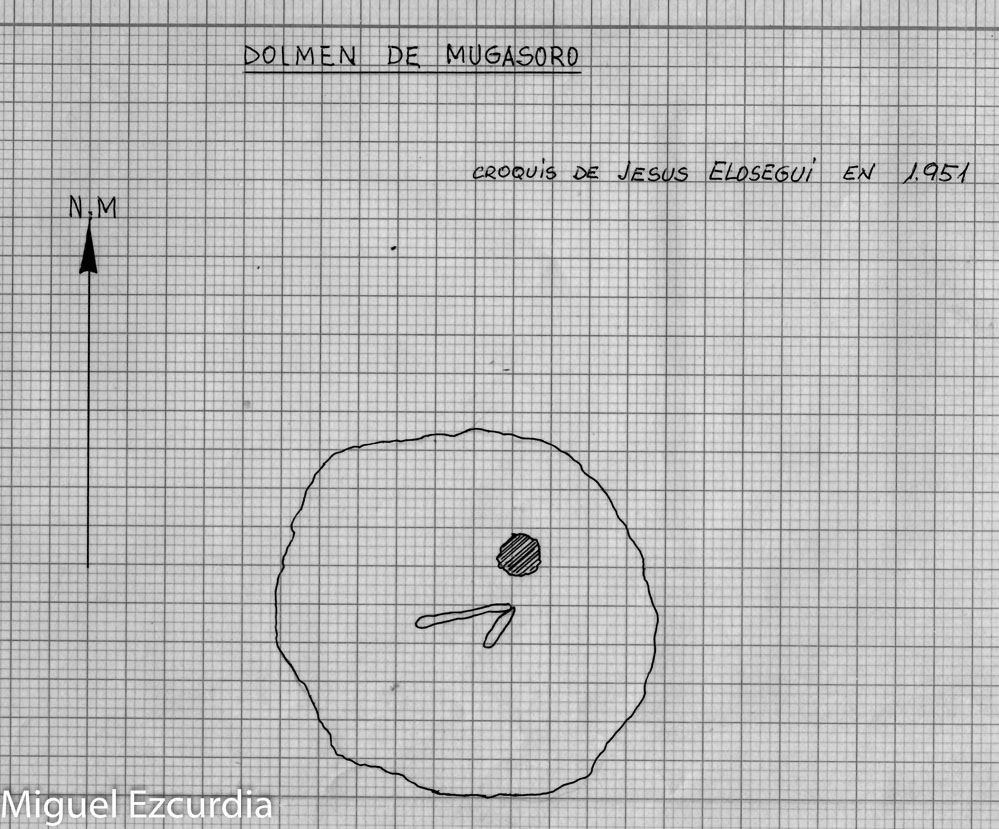 DOLMEN DE MUGASORO
CROQUiS DE JESUS ELOSEGUi EN 1.951
N.M
Miguel Ezcurdia